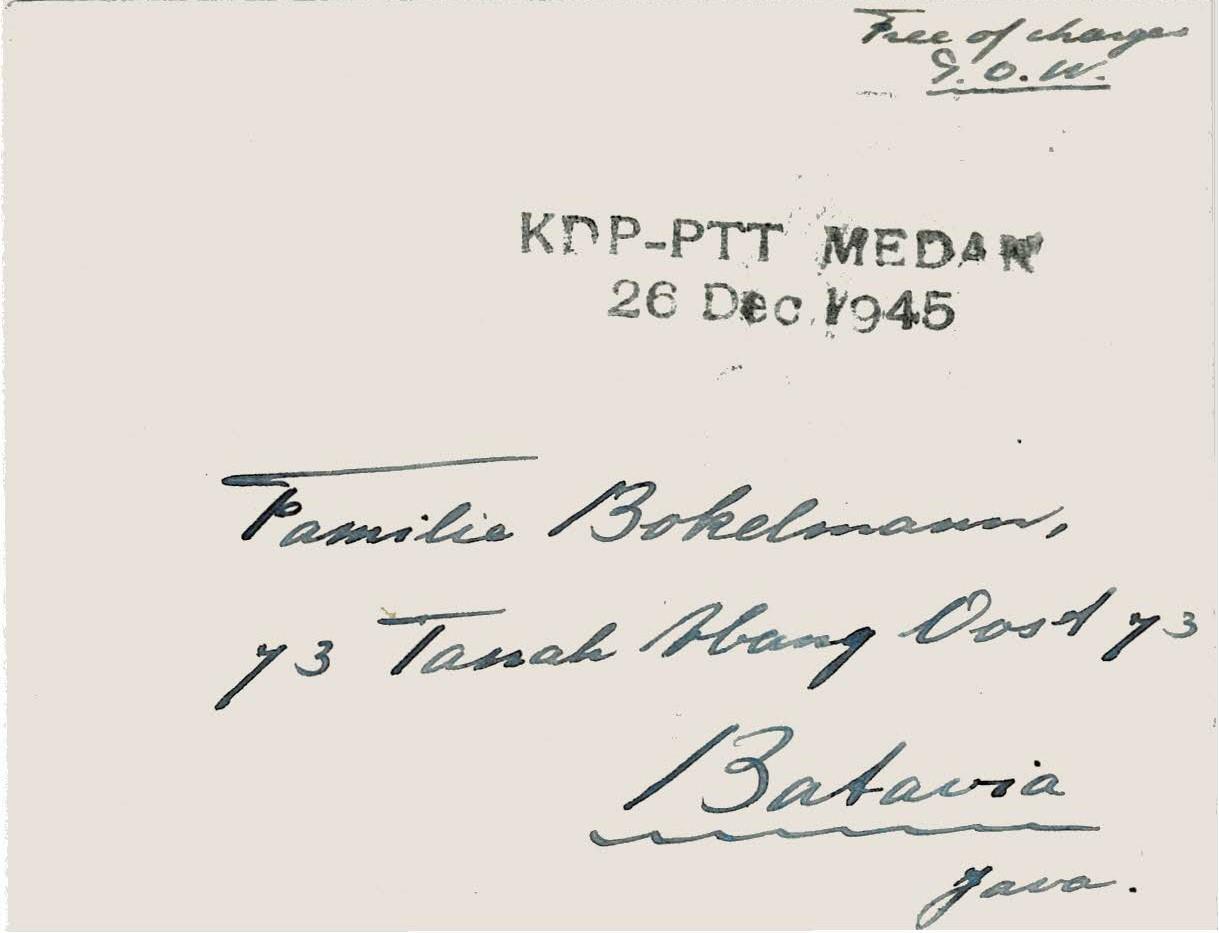 Free of charges
P.O.W.
KDP-PTT MEDAN
26 Dec. 1945
Familie Bokelmann,
73 Tanah Abang Oost 73
Batavia
Java.